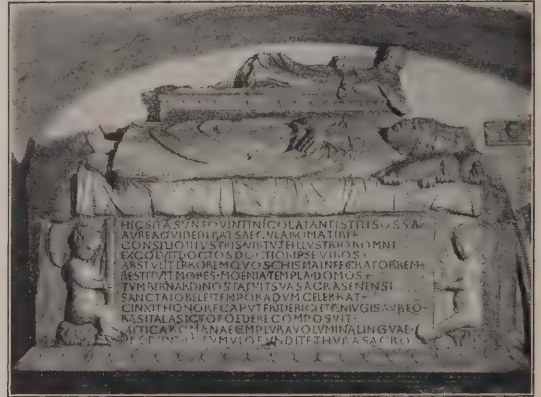 HIC SITA SVNT QVINTI NICOLAI ANTISTITIS OSSA
AVREA QVI DEDERAT SAECVLA ROMA TIBI
CONSILIO ILLVSTRIS VIRTVTE ILLVSTRIOR OMNI
EXCOLVIT DOCTOS DOCTIOR IPSE VIROS
ABSTVLIT ERROREM QVO SCHISMA INFECERAT ORBEM
RESTITVIT MORES MOENIA TEMPLA DOMOS
TVM BERNARDINO STATVIT SVA SACRA SENINSI
SANCTA IOBELEI TEMPORA DVM CELEBRAT
CINXIT HONORE CAPVT FRIDERICI ET CNIVGIS AVREO
RES ITALAS ICTO FOEDERE COMPOSVIT
ATTICA ROMANAE CMPLVRA VOLVMINA LINGVAE
TVMVLO FVNDITE THVRA SACRO